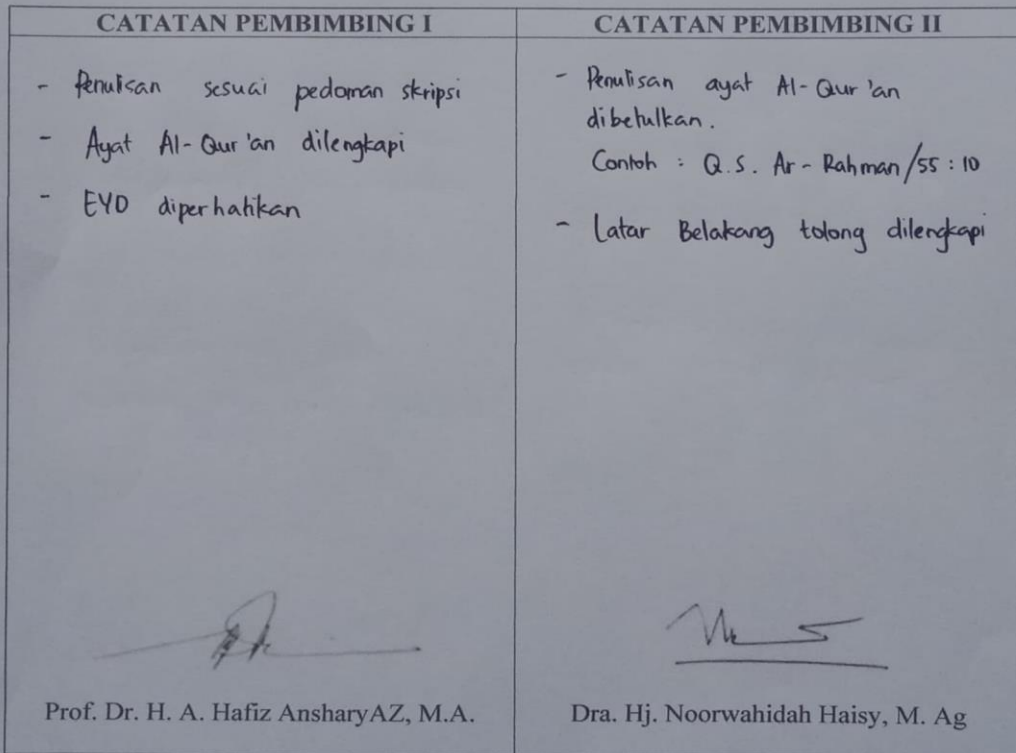 CATATAN PEMBIMBING I
- Penulisan sesuai pedoman skripsi
- Ayat Al-Qur'an dilengkapi
- EYD diperhatikan
Prof. Dr. H. A. Hafiz AnsharyAZ, M.A.
CATATAN PEMBIMBING II
- Penulisan ayat Al-Qur'an
dibetulkan.
Contoh : Q.S. Ar-Rahman/55:10
- Latar Belakang tolong dilengkapi
Dra. Hj. Noorwahidah Haisy, M. Ag